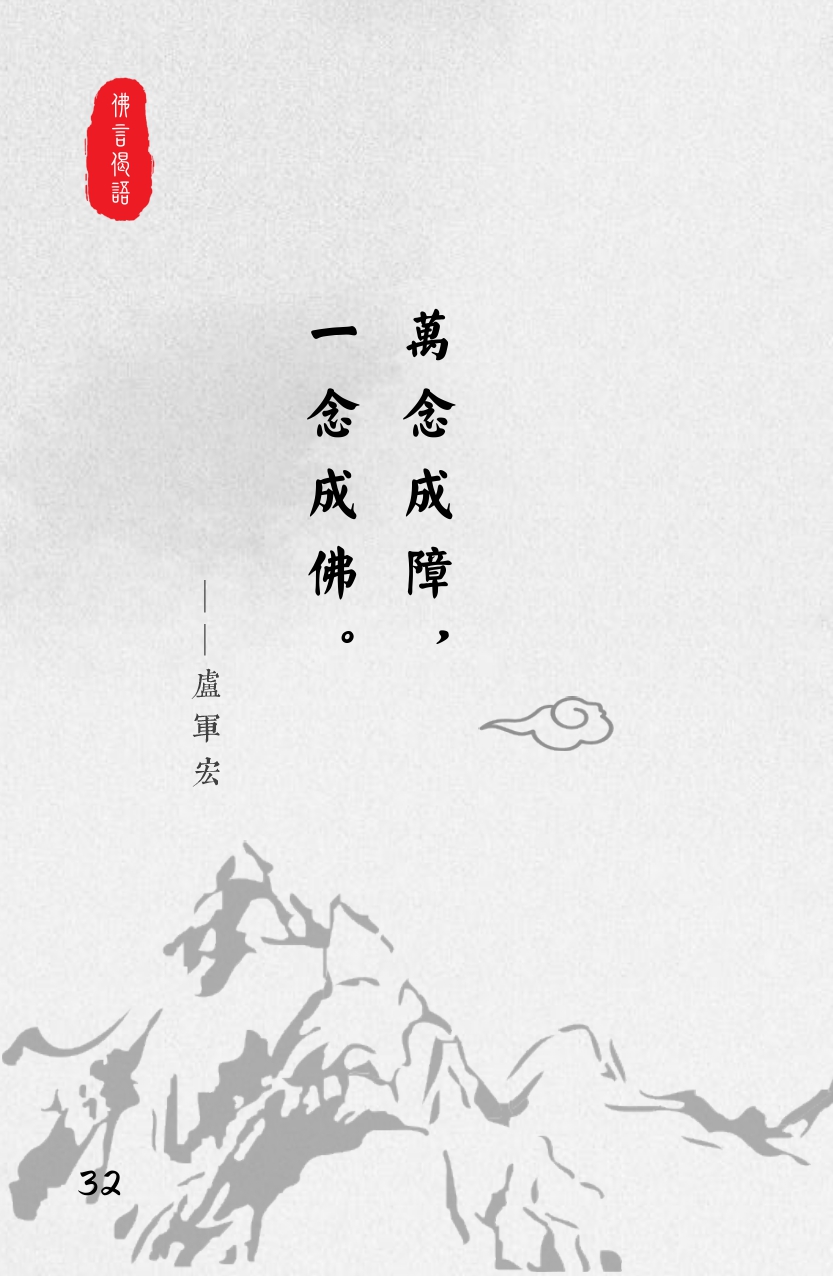 佛言偈語
萬念成障，
一念成佛。
——盧軍宏
32